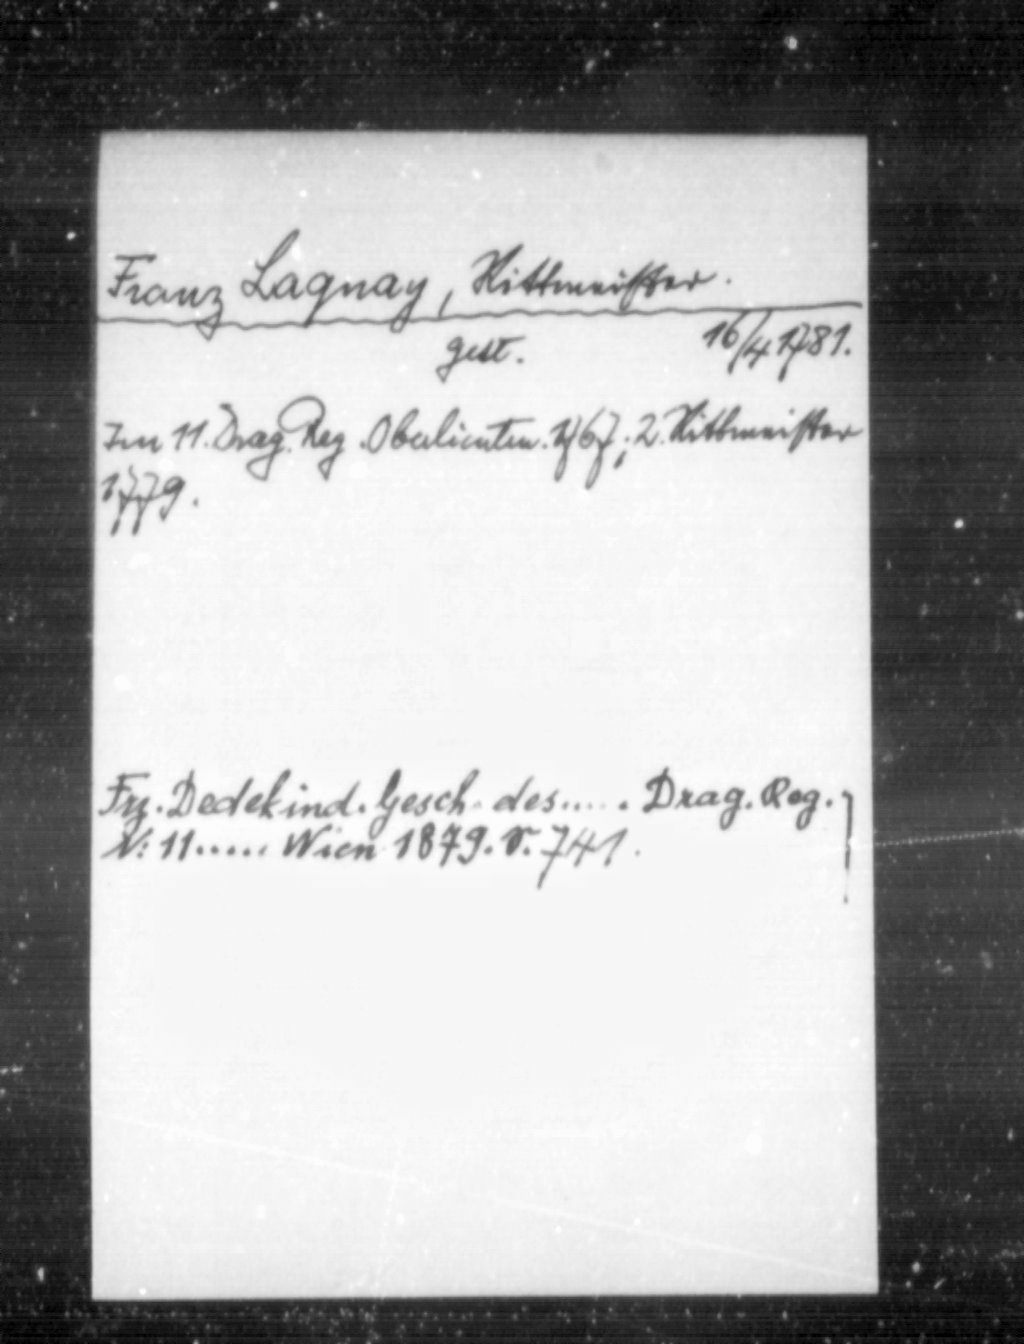 Franz Lagnay, Rittmeister.
gest. 16/4 1781.
Im 11. Drag. Reg. Oberlieutn. 1767; 2. Rittmeister
1779.
Frz. Dedekind. Gesch. des..... Drag. Reg.
N: 11..... Wien 1879. S. 741.